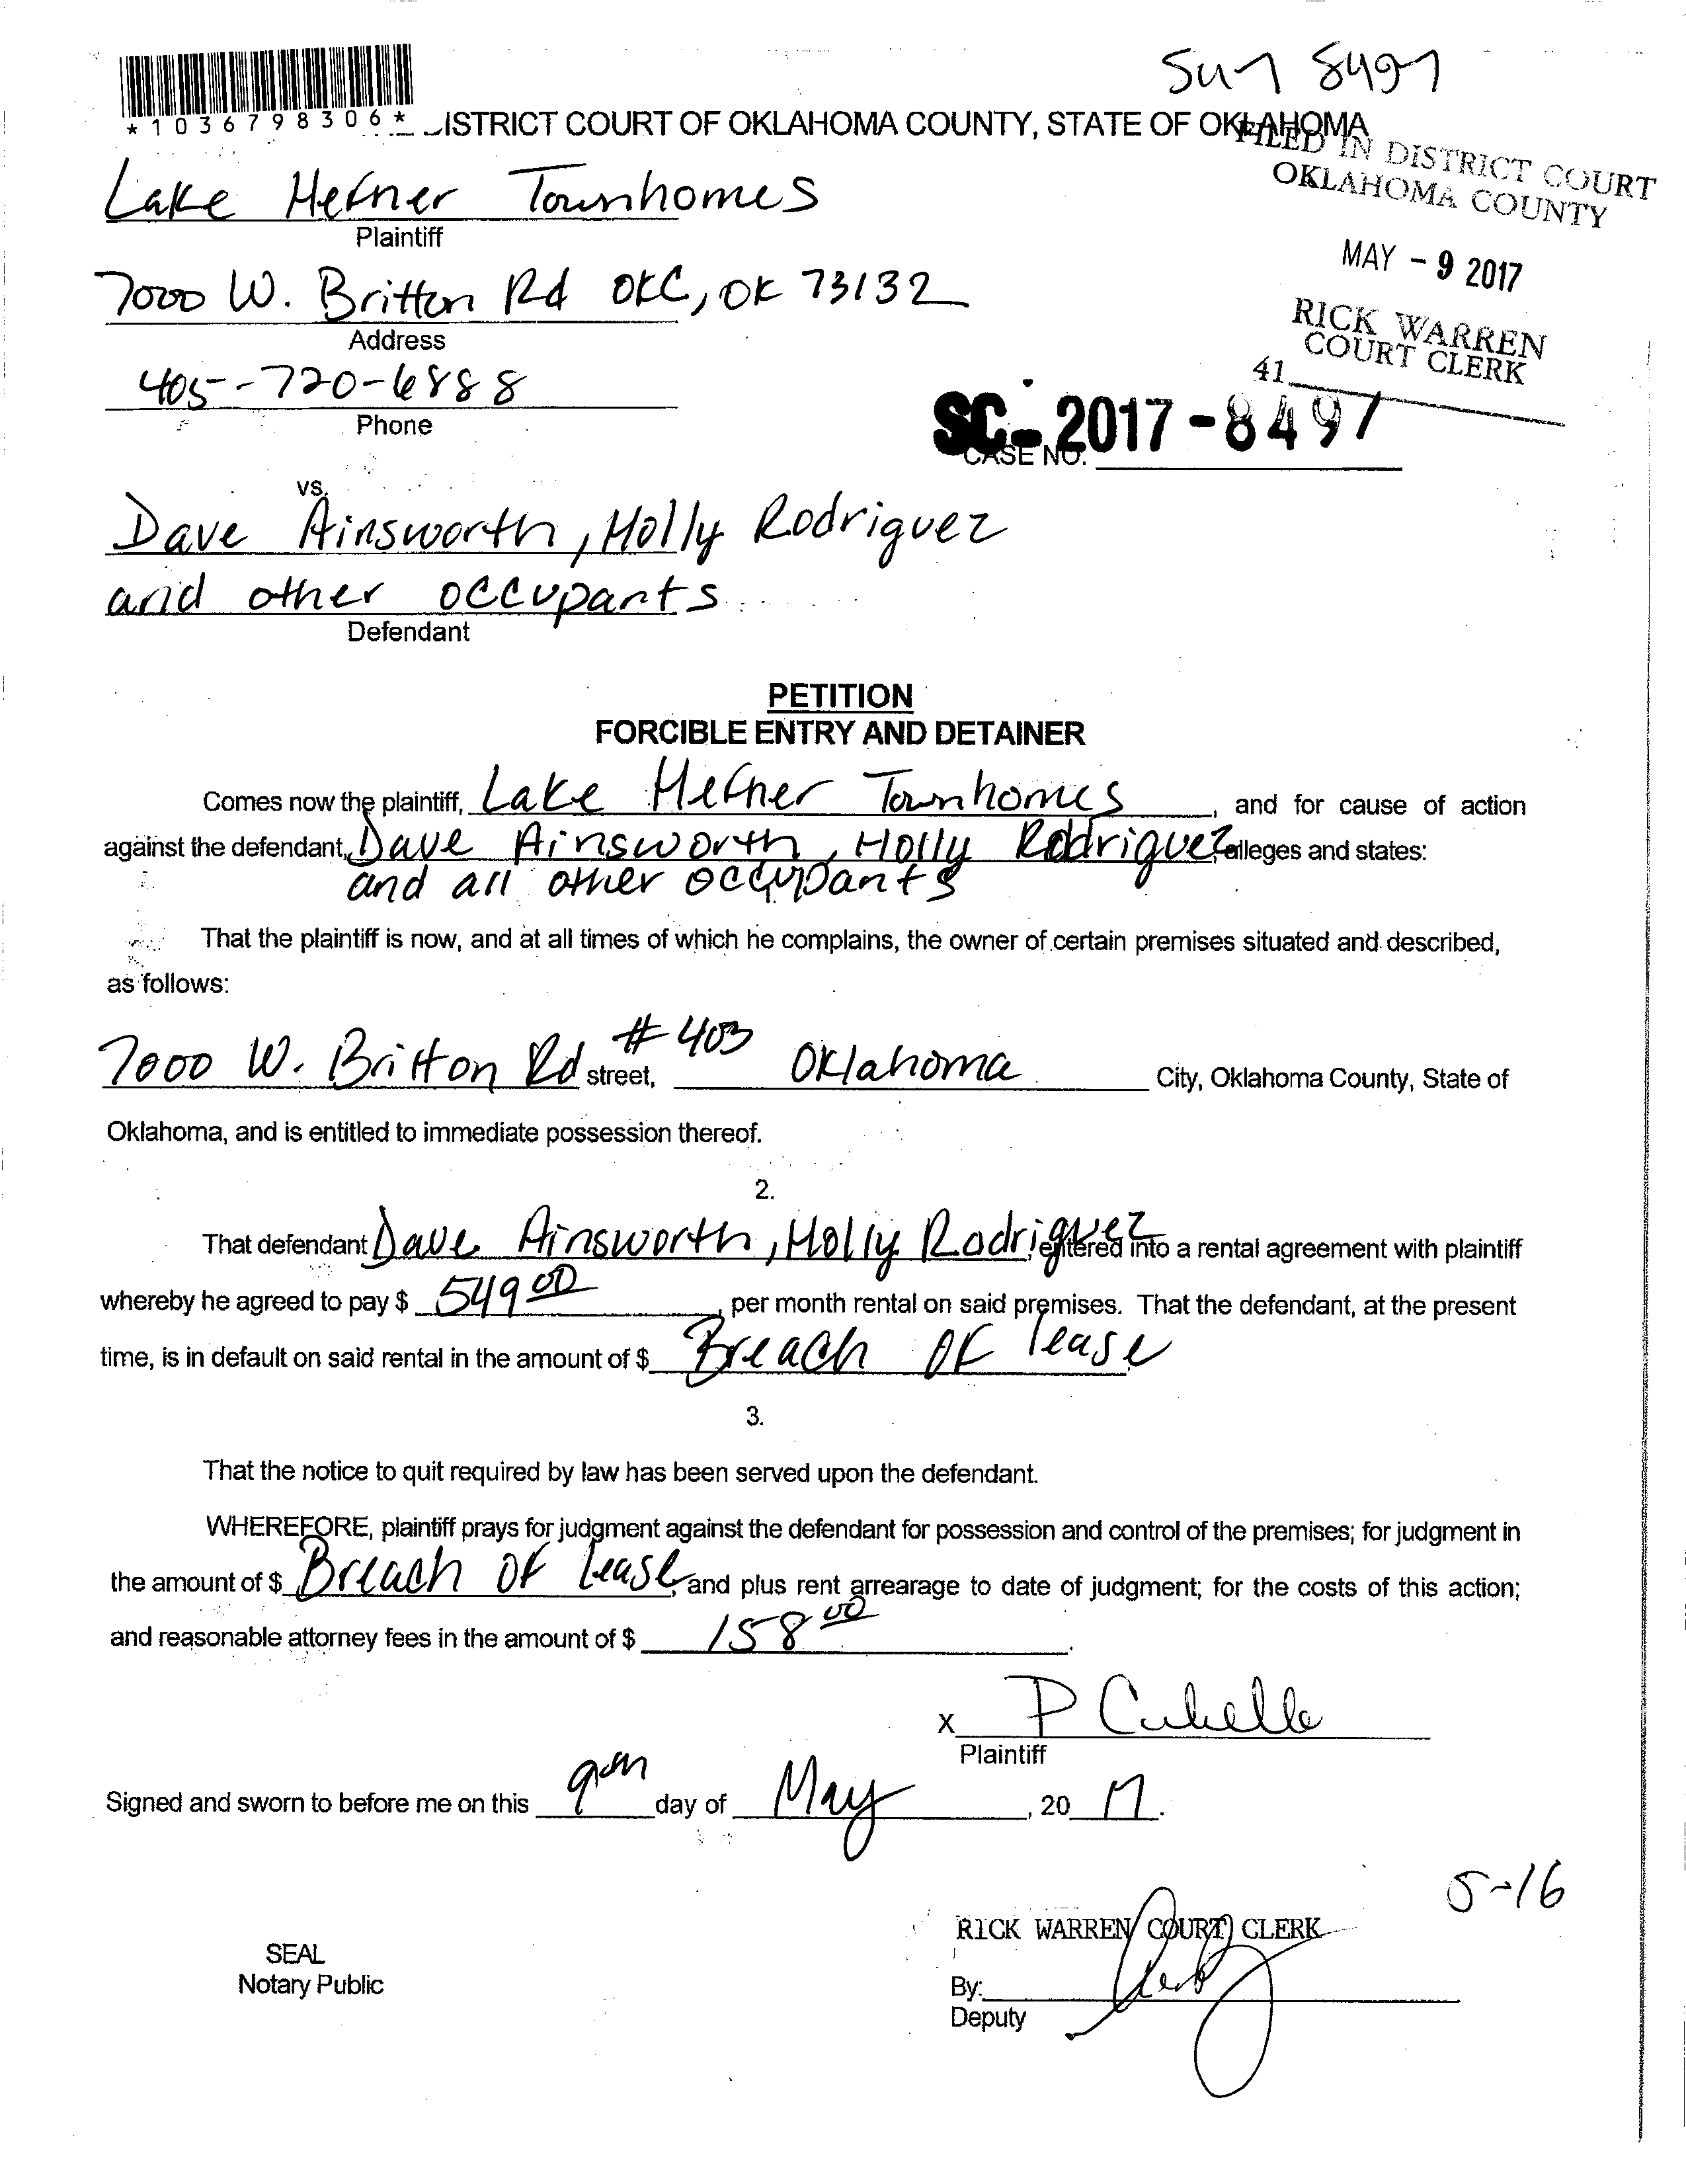 Su1 8497
*1036798306*
ISTRICT COURT OF OKLAHOMA COUNTY, STATE OF OKLAHOMA
FILED IN DISTRICT COURT
OKLAHOMA COUNTY
Lake Hefner Townhomes
Plaintiff
MAY - 9 2017
7000 W. Britton Rd OKC, OK 73132
Address
RICK WARREN
COURT CLERK
41
405-720-6888
Phone
SC-2017-8497
CASE NO.
vs.
Dave Ainsworth, Holly Rodriguez
and other occupants
Defendant
PETITION
FORCIBLE ENTRY AND DETAINER
Comes now the plaintiff, Lake Hefner Townhomes, and for cause of action
against the defendant, Dave Ainsworth, Holly Rodriguez, alleges and states:
and all other occupants
That the plaintiff is now, and at all times of which he complains, the owner of certain premises situated and described,
as follows:
7000 W. Britton Rd street, #403 Oklahoma City, Oklahoma County, State of
Oklahoma, and is entitled to immediate possession thereof.
2.
That defendant Dave Ainsworth, Holly Rodriguez entered into a rental agreement with plaintiff
whereby he agreed to pay $ 549 00, per month rental on said premises. That the defendant, at the present
time, is in default on said rental in the amount of $ Breach of lease
3.
That the notice to quit required by law has been served upon the defendant.
WHEREFORE, plaintiff prays for judgment against the defendant for possession and control of the premises; for judgment in
the amount of $ Breach of Lease, and plus rent arrearage to date of judgment; for the costs of this action;
and reasonable attorney fees in the amount of $ 158 00.
x P Cubelle
Plaintiff
Signed and sworn to before me on this 9th day of May, 2017.
5-16
RICK WARREN COURT CLERK
SEAL
Notary Public
By:
Deputy